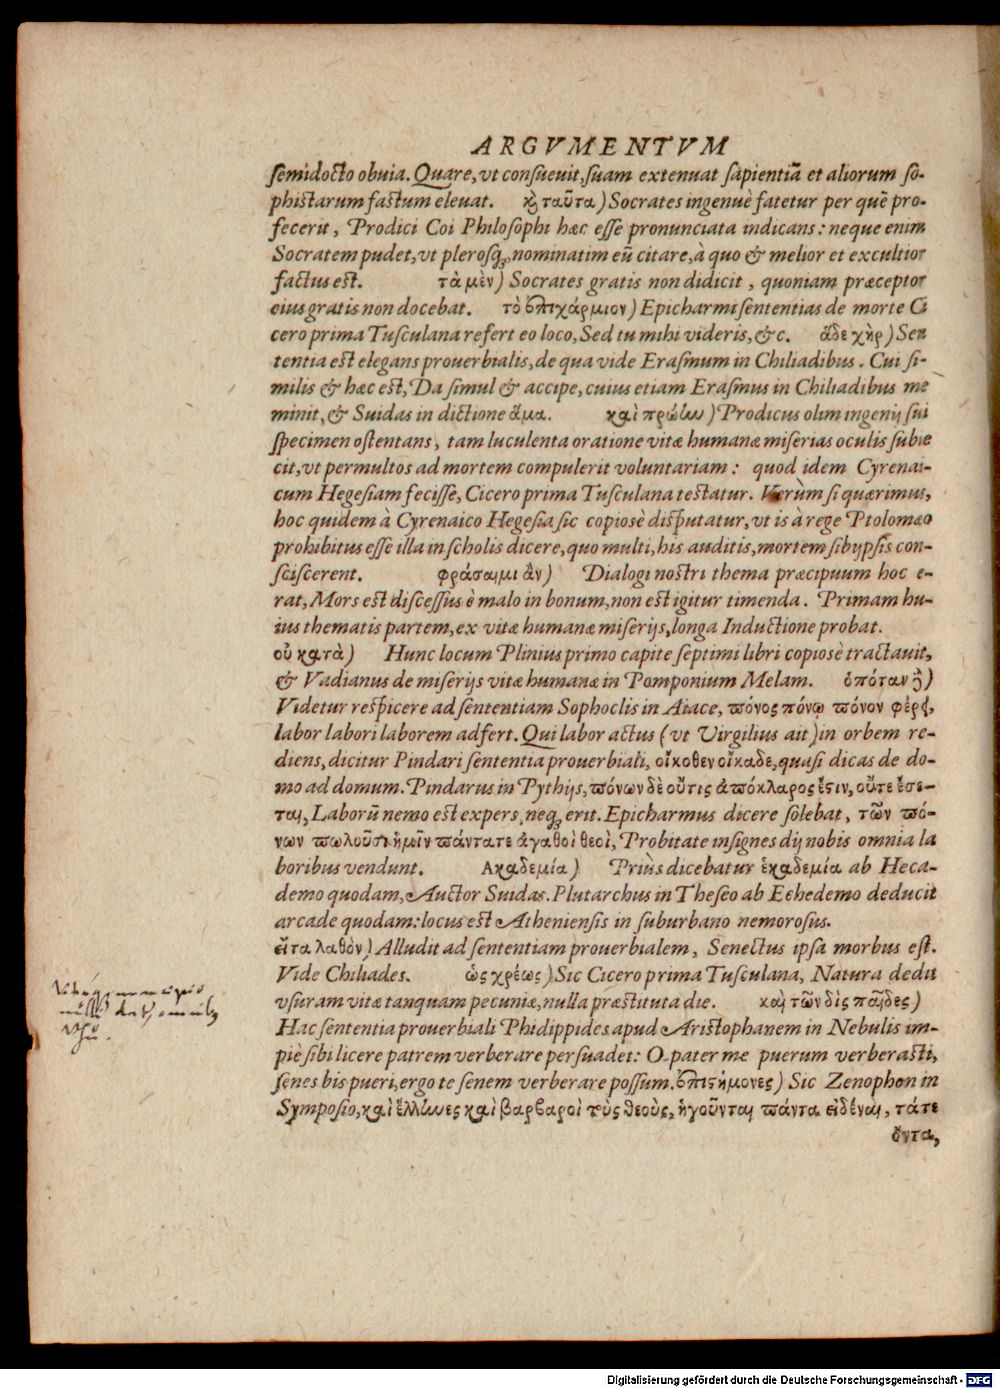 ARGVMENTVM
semidocto obuia. Quare, vt consueuit, suam extenuat sapientiã et aliorum so-
phistarum fastum eleuat. κỳ ταῦτα) Socrates ingenuè fatetur per quẽ pro-
fecerit, Prodici Coi Philosophi hæc esse pronunciata indicans: neque enim
Socratem pudet, vt plerosq;, nominatim eũ citare, à quo & melior et excultior
factus est. τὰ μὲν) Socrates gratis non didicit, quoniam præceptor
eius gratis non docebat. τὸ ἐπιχάρμιον) Epicharmi sententias de morte Ci
cero prima Tusculana refert eo loco, Sed tu mihi videris, &c. ἅδε χὴρ) Sen
tentia est elegans prouerbialis, de qua vide Erasmum in Chiliadibus. Cui si-
milis & hæc est, Da simul & accipe, cuius etiam Erasmus in Chiliadibus me
minit, & Suidas in dictione ἅμα. καὶ πρώην) Prodicus olim ingenij sui
specimen ostentans, tam luculenta oratione vitæ humanæ miserias oculis subie
cit, vt permultos ad mortem compulerit voluntariam: quod idem Cyrenai-
cum Hegesiam fecisse, Cicero prima Tusculana testatur. Verùm si quærimus,
hoc quidem à Cyrenaico Hegesia sic copiosè disputatur, vt is à rege Ptolomæo
prohibitus esse illa in scholis dicere, quo multi, his auditis, mortem sibijpsis con-
sciscerent. φράσαιμι ἂν) Dialogi nostri thema præcipuum hoc e-
rat, Mors est discessus è malo in bonum, non est igitur timenda. Primam hu-
ius thematis partem, ex vitæ humanæ miserijs, longa Inductione probat.
οὐ κατὰ) Hunc locum Plinius primo capite septimi libri copiosè tractauit,
& Vadianus de miserijs vitæ humanæ in Pomponium Melam. ὁπόταν ἢ)
Videtur respicere ad sententiam Sophoclis in Aiace, πόνος πόνῳ πόνον φέρει,
labor labori laborem adfert. Qui labor actus (vt Virgilius ait) in orbem re-
diens, dicitur Pindari sententia prouerbiali, οἴκοθεν οἴκαδε, quasi dicas de do-
mo ad domum. Pindarus in Pythijs, πόνων δὲ οὔτις ἀπόκλαρος ἔστιν, οὔτε ἔσε-
ται, Laborũ nemo est expers, neq; erit. Epicharmus dicere solebat, τῶν πό-
νων πωλοῦσι ἡμῖν πάντα τε ἀγαθοὶ θεοὶ, Probitate insignes dij nobis omnia la
boribus vendunt. Ακαδεμία) Priùs dicebatur ἑκαδεμία ab Heca-
demo quodam, Auctor Suidas. Plutarchus in Theseo ab Echedemo deducit
arcade quodam: locus est Atheniensis in suburbano nemorosus.
εἶτα λαθὸν) Alludit ad sententiam prouerbialem, Senectus ipsa morbus est.
Vide Chiliades. ὡς χρέως) Sic Cicero prima Tusculana, Natura dedit
vsuram vitæ tanquam pecuniæ, nulla præstituta die. καὶ τῶν δὶς παῖδες)
Hac sententia prouerbiali Phidippides apud Aristophanem in Nebulis im-
piè sibi licere patrem verberare persuadet: O pater me puerum verberasti,
senes bis pueri, ergo te senem verberare possum. ἐπιστήμονες) Sic Zenophon in
Symposio, καὶ ἕλληνες καὶ βαρβαροὶ τοὺς θεοὺς, ἡγοῦνται πάντα εἰδέναι, τάτε
ὄντα,
Digitalisierung gefördert durch die Deutsche Forschungsgemeinschaft - DFG